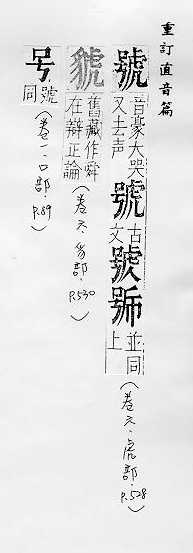 重訂直音篇
號 音豪大哭又去声 號 古文 㹿 㡾 並同上 (卷六·虎部·P.528)
貌 舊藏作舜在辯正論 (卷六·豸部·P.530)
号 號同 (卷一·口部·P.89)